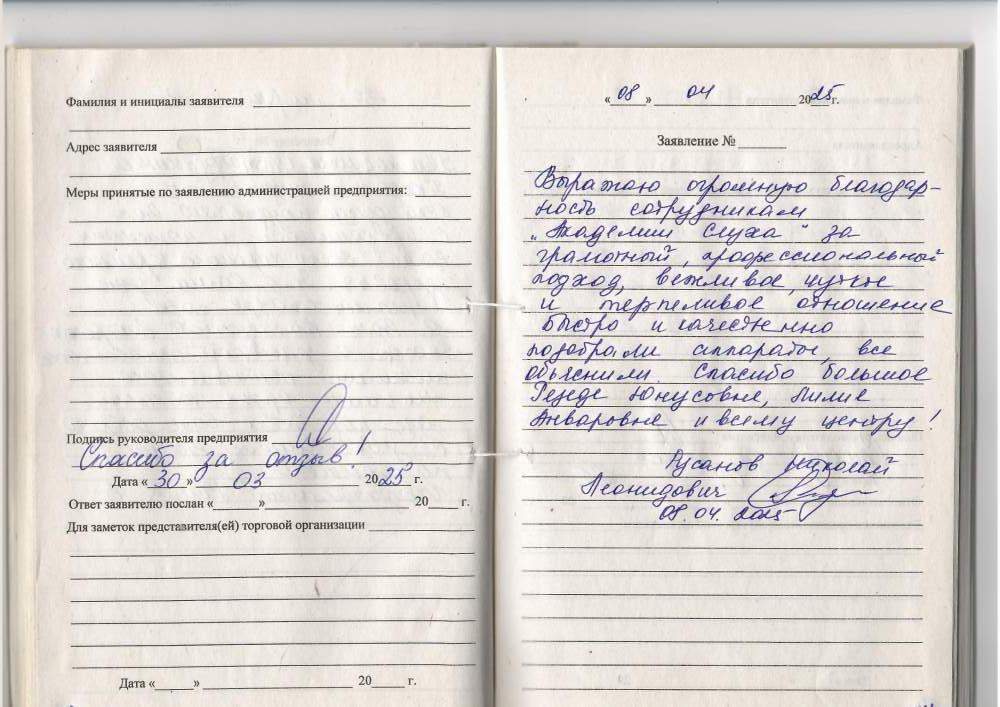 Фамилия и инициалы заявителя
Адрес заявителя
Меры принятые по заявлению администрацией предприятия:
Подпись руководителя предприятия
Спасибо за отзыв!
Дата «30» 03 2025 г.
Ответ заявителю послан «» 20 г.
Для заметок представителя(ей) торговой организации
Дата «» 20 г.
«08» 04 2025 г.
Заявление №
Выражаю огромную благодар-
ность сотрудникам
"Академии Слуха" за
грамотный, профессиональный
подход, вежливое, чуткое
и терпеливое отношение
Быстро и качественно
подобрали аппараты, все
объяснили. Спасибо большое
Резеде Юнусовне, Лилие
Анваровне и всему центру!
Русанов Николай
Леонидович
08.04.2025